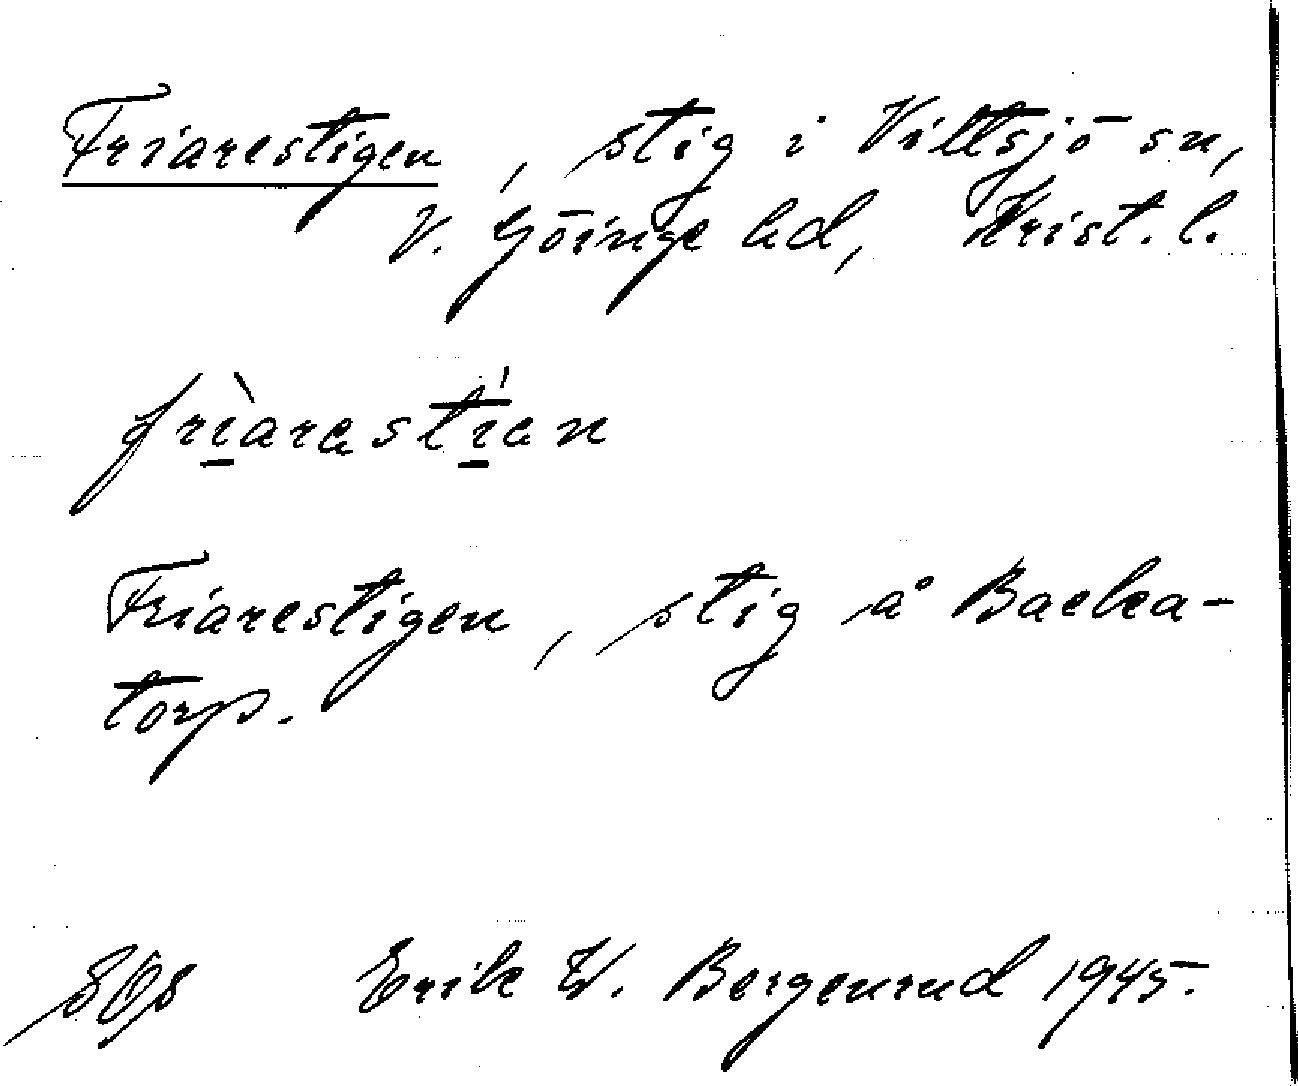 Friarestigen, stig i Vittsjö sn,
V. Göinge hd, Krist. l.
frìarestíen
Friarestigen, stig å Backa-
torp.
Erik W. Bergenrud 1945.